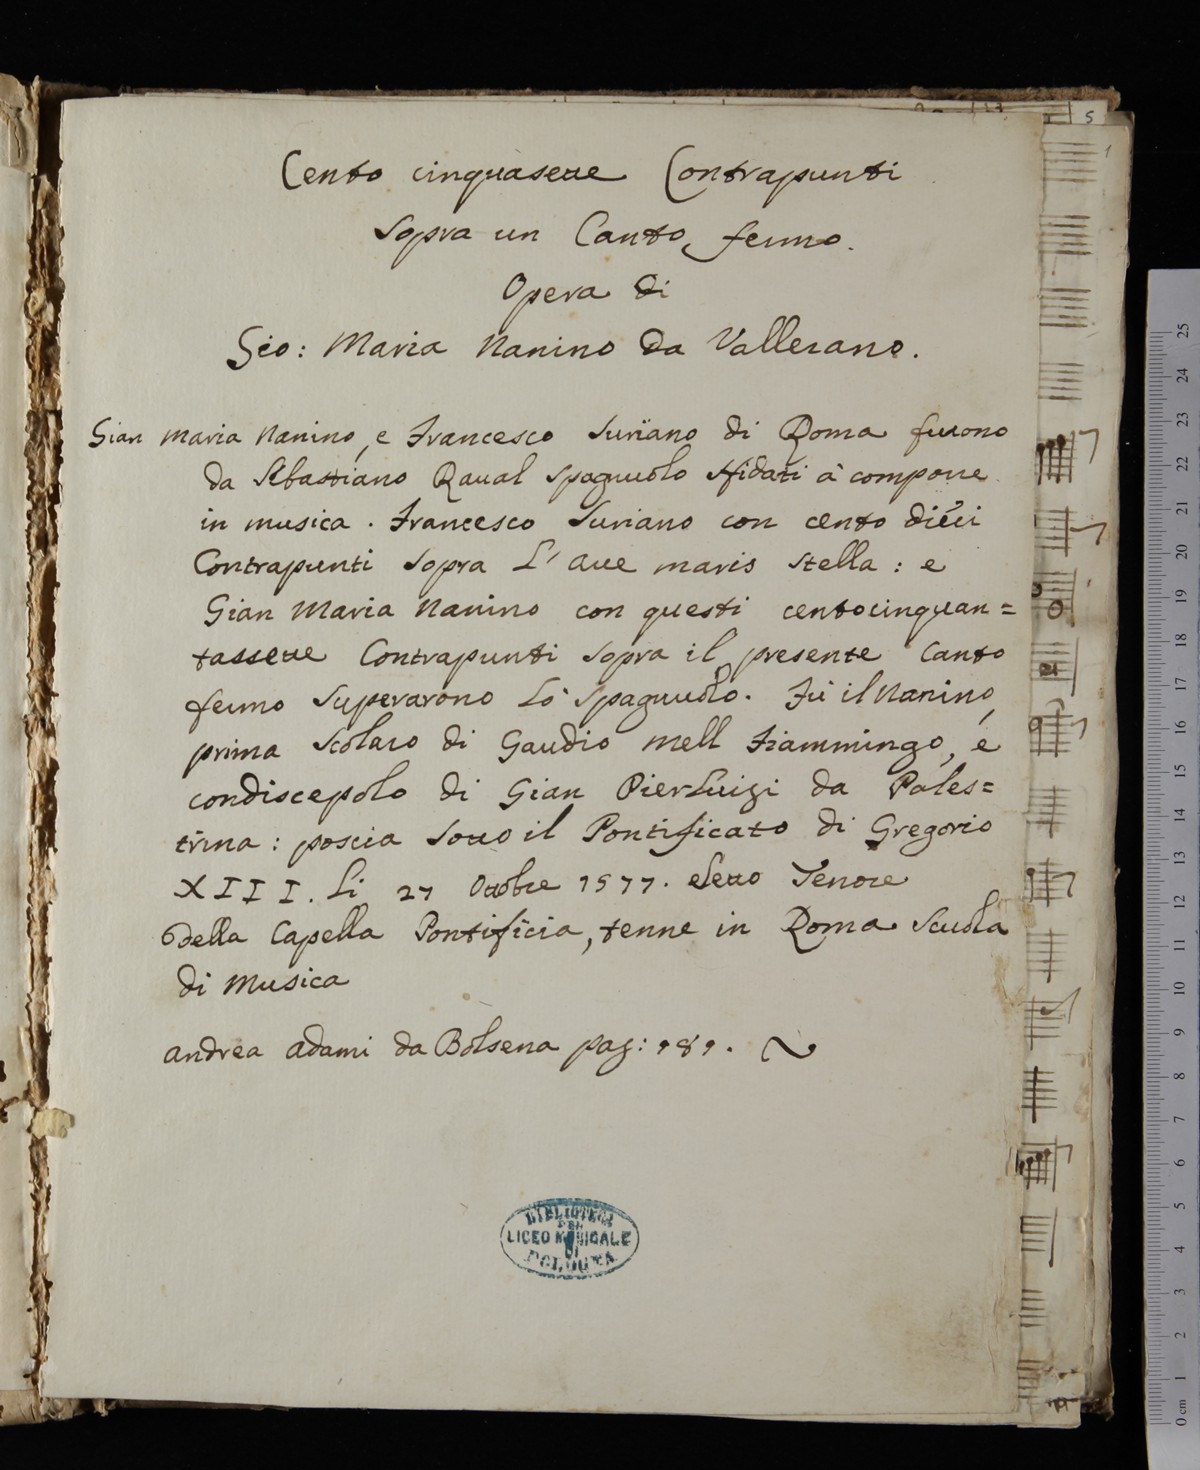 Cento cinquasette Contrapunti
Sopra un Canto fermo.
Opera di
Gio: Maria Nanino da Vallerano.
Gian Maria Nanino, e Francesco Suriano di Roma furono
da Sebastiano Raval Spagnuolo sfidati à comporre
in musica. Francesco Suriano con cento dieci
Contrapunti sopra L'ave maris stella: e
Gian Maria Nanino con questi centocinquan=
tassette Contrapunti sopra il presente Canto
fermo superarono Lo Spagnuolo. Fù il Nanino
prima Scolaro di Gaudio mell Fiammingo, e
condiscepolo di Gian PierLuigi da Pales=
trina: poscia sotto il Pontificato di Gregorio
XIII. Li 27 Ottobre 1577. eletto Tenore
della Capella Pontificia, tenne in Roma Scuola
di Musica
andrea adami da Bolsena pag: 181.
BIBLIOTECA
DEL
LICEO MUSICALE
DI
BOLOGNA
5
1
25
24
23
22
21
20
19
18
17
16
15
14
13
12
11
10
9
8
7
6
5
4
3
2
1
0 cm